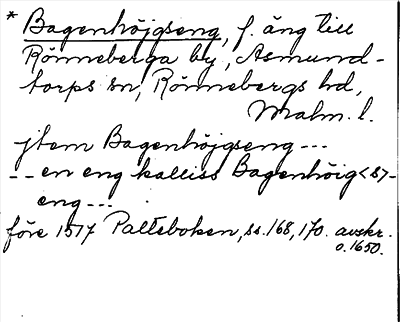 * Bagenhöjgseng, f. äng till
Rönneberga by, Asmund-
torps sn, Rönnebergs hd,
Malm. l.
jtem Bagenhöjgseng ---
-- en eng kalliss Bagenhöig<s>-
eng ---
före 1517 Palteboken, ss. 168, 170. avskr.
o. 1650.